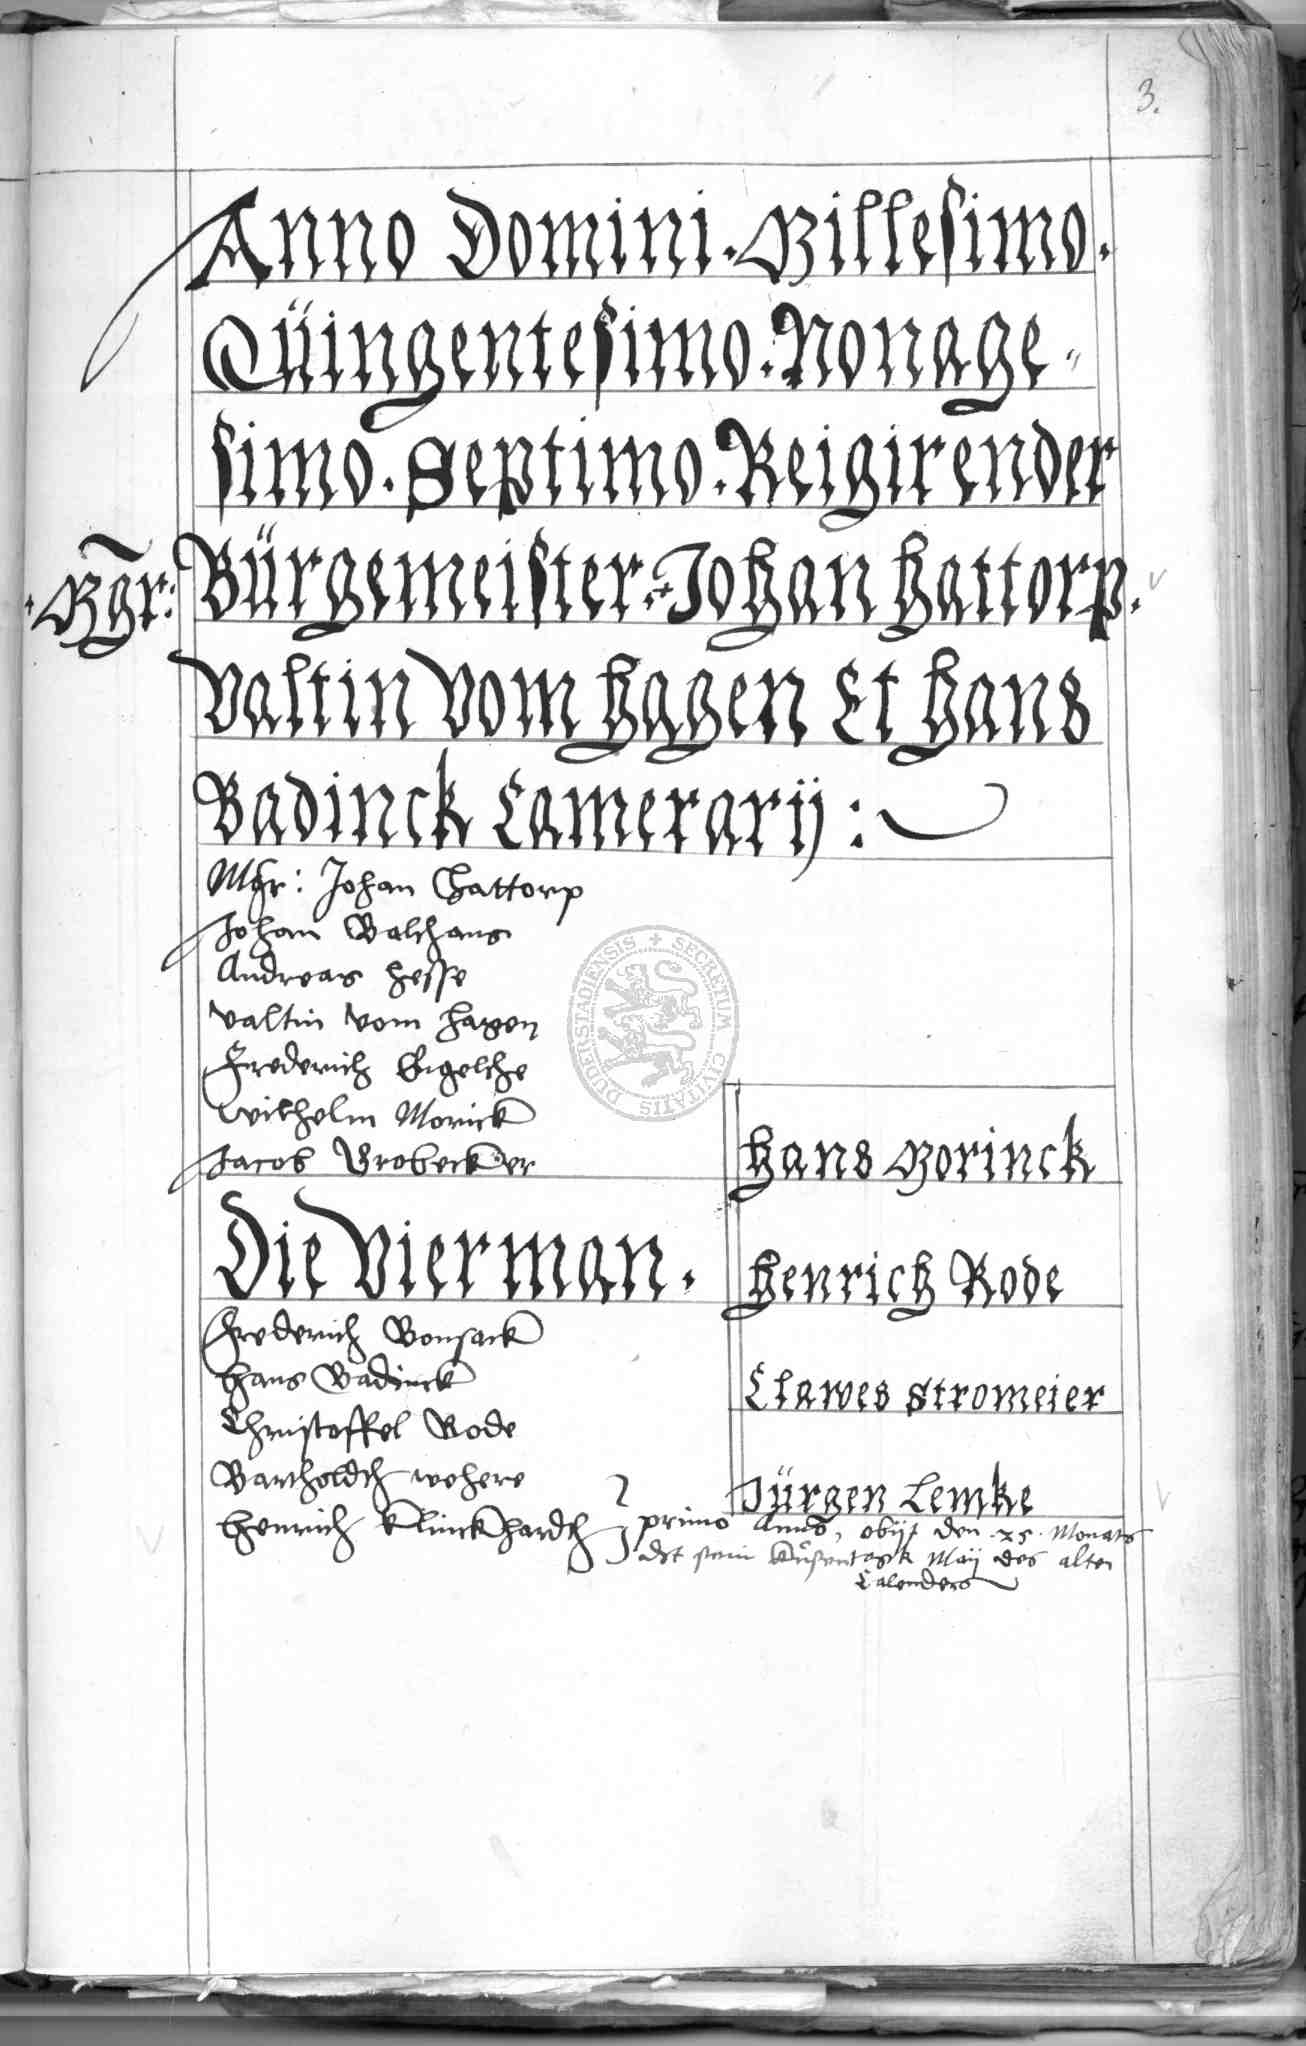 3.
Anno Domini. Millesimo.
Qüingentesimo. Nonage=
simo. Septimo. Reigirender
Mgr: Bürgemeister. Johan Hattorp.
Valtin Vom Hagen Et Hans
Badinck Camerarij:
Mgr: Johan Hattorp
Johan Balthans
Andreas Hesse
Valtin Vom Hagen
Frederich Engelche
Wilhelm Morinck
Jacob Brobecker
Hans Morinck
Die Vierman.
Henrich Rode
Frederich Bonsack
Hans Badinck
Clawes Stromeier
Christoffel Rode
Bartholdt wehere
Jürgen Lemke
Henrich Klinckhardt
primo Anno, obijt den 25. Monats
Maij des alten
Calenders
DUDERSTADIENSIS + SECRETUM CIVITATIS